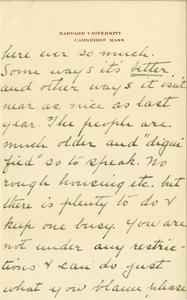 HARVARD UNIVERSITY
CAMBRIDGE MASS
here ever so much.
Some ways it's better
and other ways it isn't
near as nice as last
year. The people are
much older and "digni
fied" so to speak. No
rough housing etc. but
there is plenty to do &
keep one busy. You are
not under any restric-
tions & can do just
what you blame please